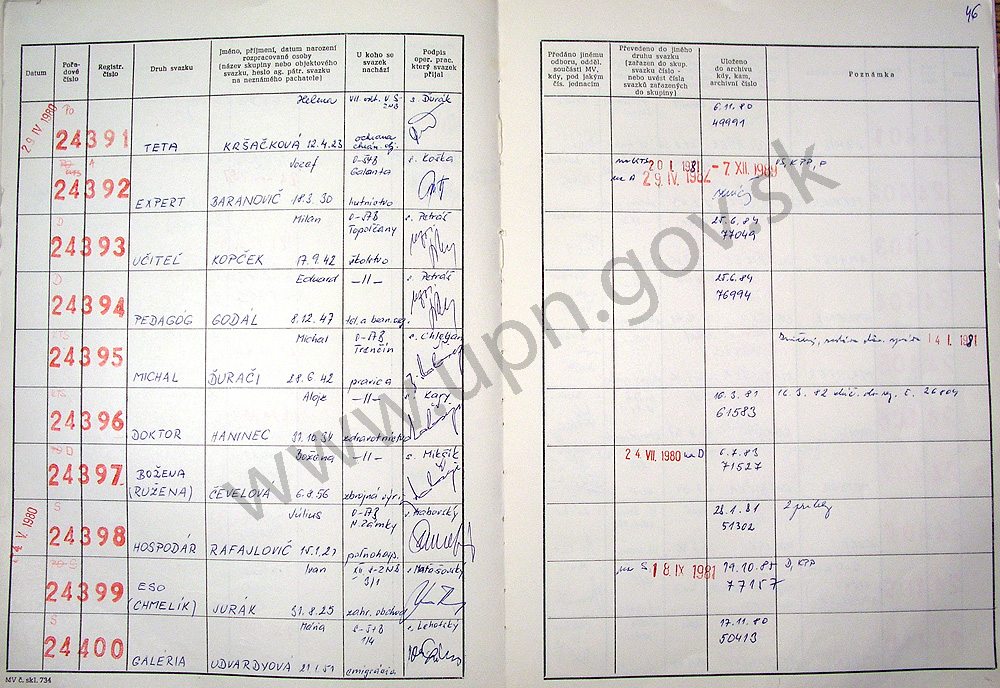 46
Datum
Pořa-
dové
číslo
Registr.
číslo
Druh svazku
Jméno, příjmení, datum narození
rozpracované osoby
(název skupiny nebo objektového
svazku, heslo ag. pátr. svazku
na neznámého pachatele)
U koho se
svazek
nachází
Podpis
oper. prac.
který svazek
přijal
Předáno jinému
odboru, odděl.
součásti MV,
kdy, pod jakým
čís. jednacím
Převedeno do jiného
druhu svazku
(zařazen do skup.
svazku číslo -
nebo uvést čísla
svazků zařazených
do skupiny)
Uloženo
do archivu
kdy, kam,
archivní číslo
Poznámka
29 IV 1980
Po
24391
TETA
Helena
KRŠAČKOVÁ 12.4.23
ochrana
s. Durák
6.11.80
49991
A
24392
EXPERT
Jozef
BARANOVIČ 18.3.30
0-ŠTB
Galanta
hutníctvo
s. Koška
20 I. 1981 - 7 XII. 1989
na A 29. IV. 1982
D
24393
UČITEĽ
Milan
KOPČEK 17.9.42
0-ŠTB
Topoľčany
školstvo
s. Petráš
25.6.84
77049
D
24394
PEDAGÓG
Eduard
GODÁL 8.12.47
-11-
s. Petráš
25.6.84
76994
24395
MICHAL
Michal
ĎURAČI 28.6.42
0-ŠTB
Trenčín
pravica
14 I. 1981
24396
DOKTOR
Alojz
HANINEC 31.10.34
-11-
zdravotníctvo
10.3.81
61583
D
24397
BOŽENA
(RUŽENA)
Božena
ČEVELOVÁ 6.8.56
-11-
s. Mikčík
24. VII. 1980 na D
6.7.83
71527
14. V. 1980
S
24398
HOSPODÁR
Július
RAFAJLOVIČ 15.1.21
0-ŠTB
N. Zámky
poľnohosp.
28.1.81
51302
24399
ESO
(CHMELÍK)
Ivan
JURÁK 31.8.25
zahr. obchod
na S. 18. IX 1981
19.10.85
77157
D, KPP
S
24400
GALÉRIA
Mária
UDVARDYOVÁ 21.1.51
emigrácia
s. Lehotský
17.11.80
50413
MV č. skl. 734
www.upn.gov.sk